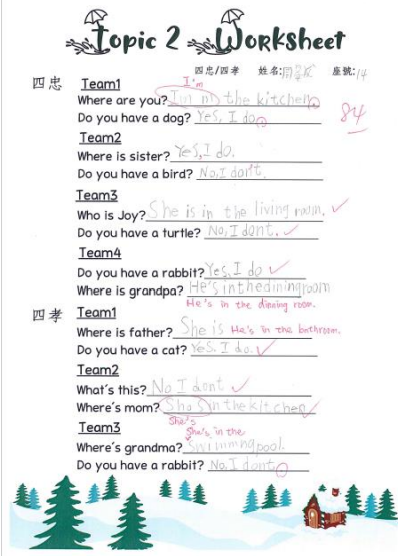 Topic 2 Worksheet
四忠/四孝 姓名: 座號:14
四忠 Team1
I'm
Where are you? I'm in the kitchen.
84
Do you have a dog? Yes, I do.
Team2
Where is sister? Yes, I do.
Do you have a bird? No, I don't.
Team3
Who is Joy? She is in the living room.
Do you have a turtle? No, I dont.
Team4
Do you have a rabbit? Yes, I do
Where is grandpa? He's inthediningroom
He's in the dinning room.
四孝 Team1
Where is father? She is He's in the bathroom.
Do you have a cat? Yes, I do.
Team2
What's this? No I dont
Where's mom? in the kitchen
She's
She's in the
Team3
Where's grandma? Swimmingpool.
Do you have a rabbit? No, I dont